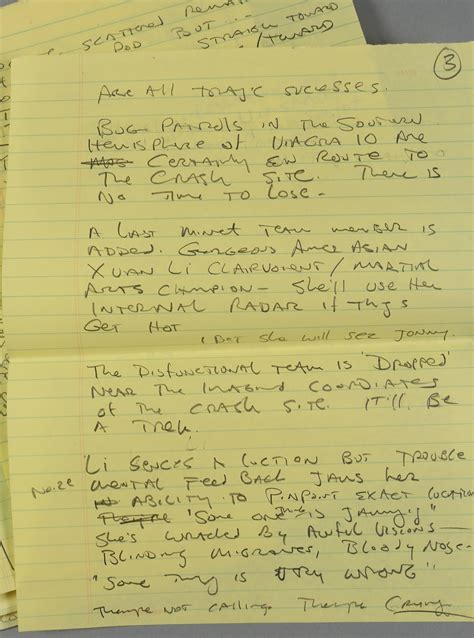 SCATTERED REMAI
POD BUT...
STRAIGHT TOWARD
TOWARD
3
ARE ALL TRAGIC SUCCESSES.
BUG PATROLLS IN THE SOUTHERN
HEMISPHERE OF VIAGRA 10 ARE
CERTAINLY EN ROUTE TO
THE CRASH SITE. THERE IS
NO TIME TO LOSE-
A LAST MINET TEAM MEMBER IS
ADDED. GORGEOUS ASIAN
XUAN LI CLAIRVOIENT/MARTIAL
ARTS CHAMPION- SHE'LL USE HER
INTERNAL RADAR IF THGS
GET HOT
BUT SHE WILL SEE JONNY.
THE DISFUNCTIONAL TEAM IS 'DROPPED'
NEAR THE IMAGIND COORDINATES
OF THE CRASH SITE. IT'LL BE
A TREK.
LI SENCES A LOCTION BUT TROUBLE
MENTAL FEED BACK JAMS HER
ABILITY TO PINPOINT EXACT LOCATION
"SOME ONE IS JAMING"
SHE'S WRACKED BY AWFUL VISIONS-
BLINDING MIGRANES, BLOODY NOSE-
"SOME THING IS VRY WRONG"
NOT CALLING. CRYING